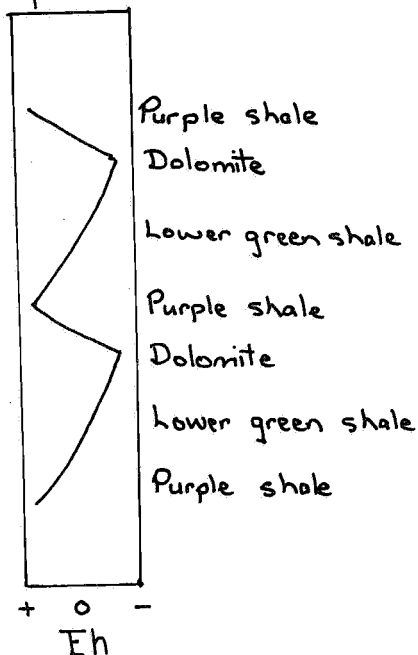 Purple shale
Dolomite
Lower green shale
Purple shale
Dolomite
Lower green shale
Purple shale
+ 0 -
Eh